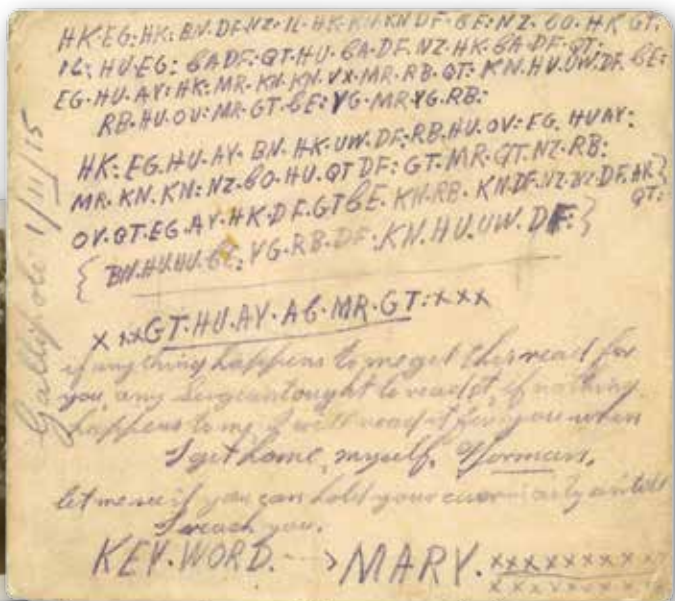 HK·EG: HK: BN·DF·NZ·IL·HK·KN·KN·DF·6E: NZ·6O·HK·GT:
IL: HU·EG: 6A·DF: QT·HU·6A·DF·NZ·HK·6A·DF·QT:
EG·HU·AY: HK: MR·KN·KN·VX·MR·RB·QT: KN·HU·UW·DF·6E:
RB·HU·OV: MR·GT·6E: YG·MR·YG·RB:
HK: EG·HU·AY·BN·HK·UW·DF: RB·HU·OV: EG·HU·AY:
MR·KN·KN: NZ·6O·HU·QT·DF: GT·MR·QT·NZ·RB:
OV·QT·EG·AY·HK·DF·GT·6E·KN·RB·KN·DF·NZ·NZ·DF·AY} QT:
{BN·HU·HU·6E: YG·RB·DF: KN·HU·UW·DF:}
xxxGT·HU·AY·A6·MR·GT:xxx
if anything happens to me get this read for
you, any Sergeant ought to read it, if nothing
happens to me I will read it for you when
I get home, myself, Norman,
let me see if you can hold your curiosity until
I reach you.
KEY·WORD. --> MARY. xxxxxxxxx
xxxxxxxxx
Gallipole 1/11/15